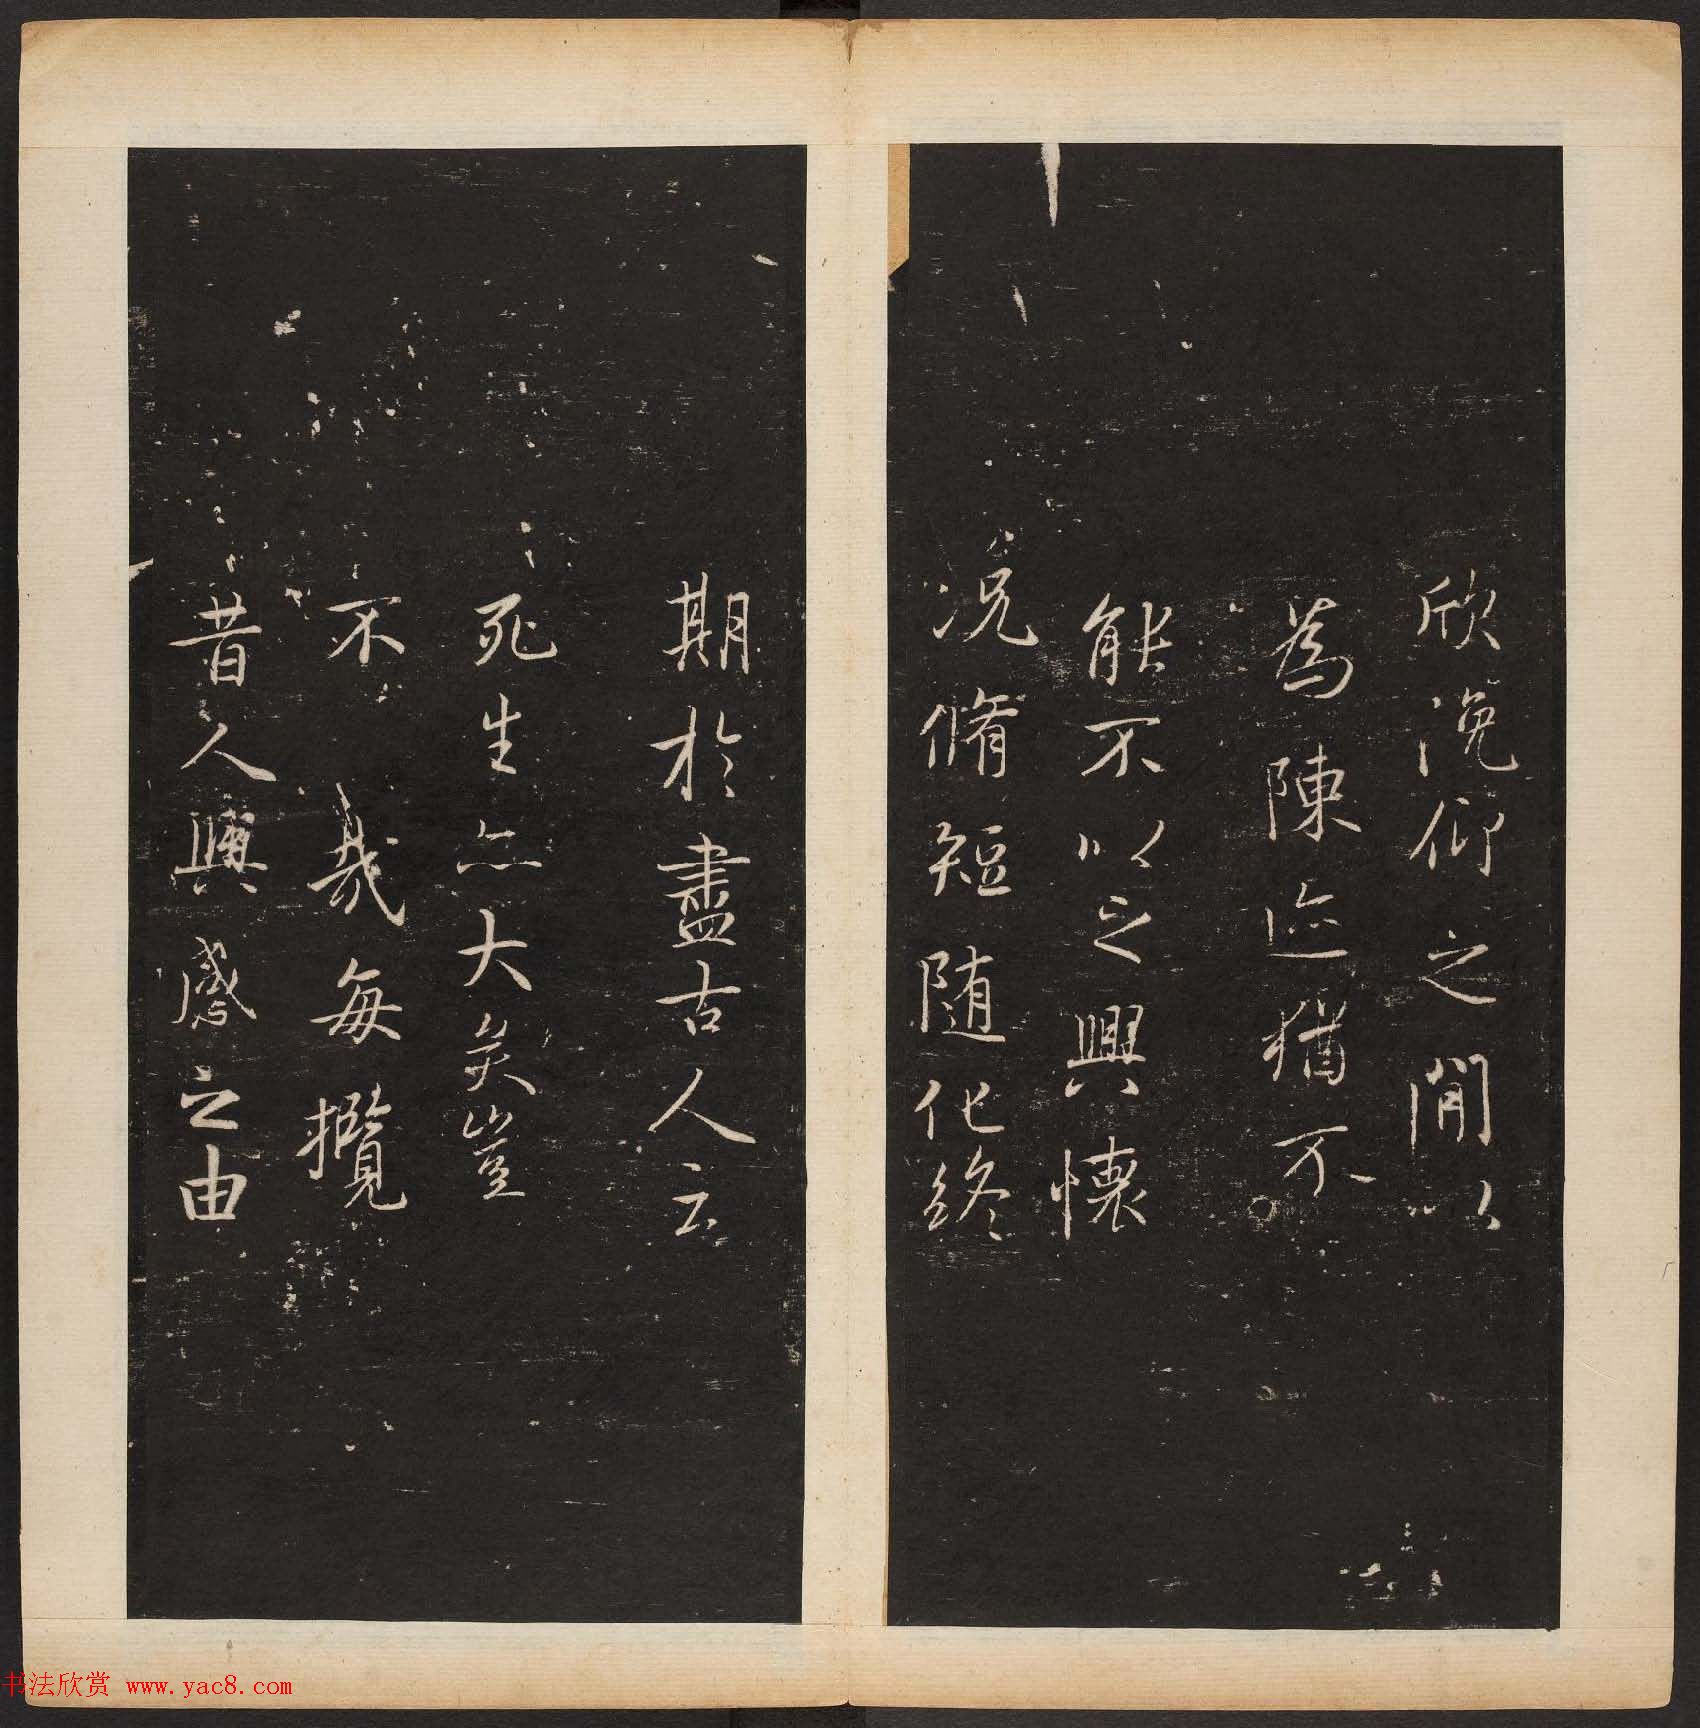 欣俛仰之閒以
為陳迹猶不
能不以之興懷
況脩短随化終
期於盡古人云
死生亦大矣豈
不哉每攬
昔人興感之由
书法欣赏 www.yac8.com